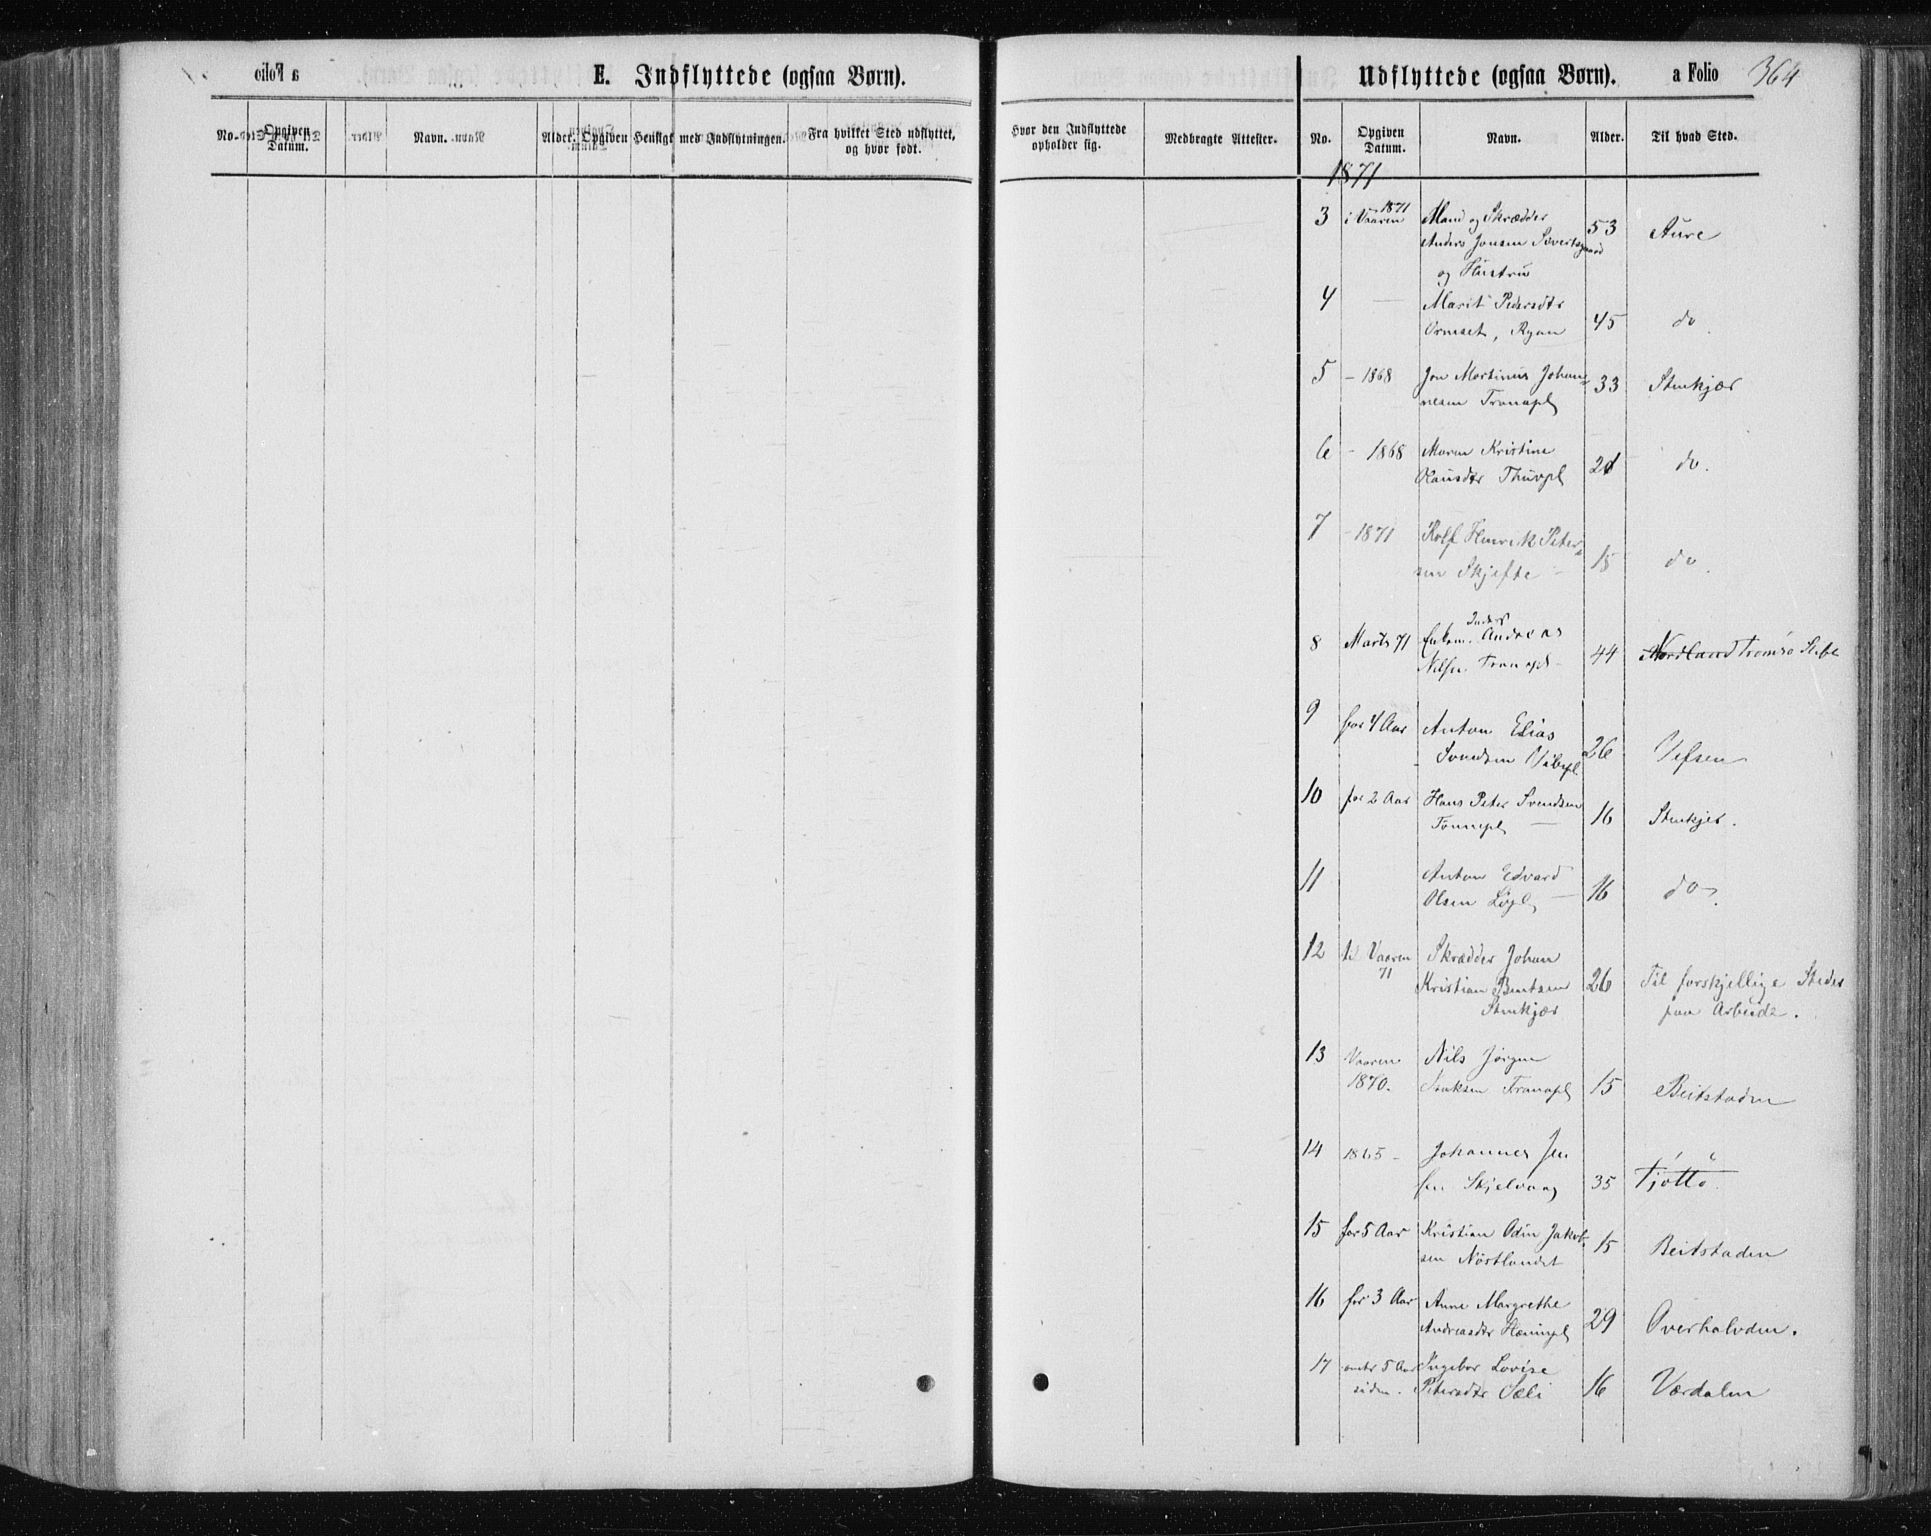 a Folio
E. Indflyttede (ogsaa Børn).
No. Opgiven Datum. Navn. Alder. Opgiven Hensigt med Indflytningen. Fra hvilket Sted udflyttet, og hvor født.
Udflyttede (ogsaa Børn). a Folio 364
Hvor den Indflyttede opholder sig. Medbragte Attester. No. Opgiven Datum. Navn. Alder. Til hvad Sted.
1871
3 i Vaaren 1871 Mand og Skrædder
Anders Jonsen 53 Aure
og Hustru
4 — Marit Pedersdtr
Ormset, Ryan 45 do.
5 – 1868 Jon Martinus Johan-
nesen Tranapl 33 Stenkjær
6 – 1868 Maren Kristine
Olausdtr 21 do.
7 – 1871 Rolf Henrik Peter-
sen Skjefte – 15 do.
8 Marts 71 Andreas
Nilsen Tranapl – 44 Nordland Tromsø Stift
9 for 4 Aar Anton Elias
Svendsen 26 Vefsen
10 for 2 Aar Hans Peter Svendsen
— 16 Stenkjer.
11 Anton Edvard
Olsen — 16 do.
12 Vaaren 71 Skrædder Johan
Kristian Bentsen 26 Til forskjellige Steder
Stenkjær paa Arbeide.
13 Vaaren Nils Jørgen
1870. Tranapl 15 Beitstaden
14 1865 – Johannes Jen
sen Skjelvaag 35 Tjøttø.
15 for 5 Aar Kristian Odin Jakob-
sen Nøstlandet 15 Beitstaden
16 for 3 Aar Anne Margrethe
Andreasdtr 29 Overhalvden.
17 5 Aar Ingebor Lovise
siden. Petersdtr Sæli 16 Værdalen